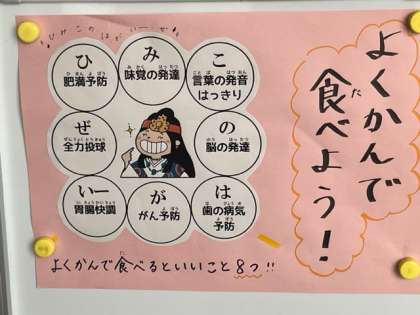 よくかんで
食べよう！
ひみこのはがいーぜ
ひ
肥満予防
み
味覚の発達
こ
言葉の発音
はっきり
の
脳の発達
は
歯の病気
予防
が
がん予防
いー
胃腸快調
ぜ
全力投球
よくかんで食べるといいこと8つ!!